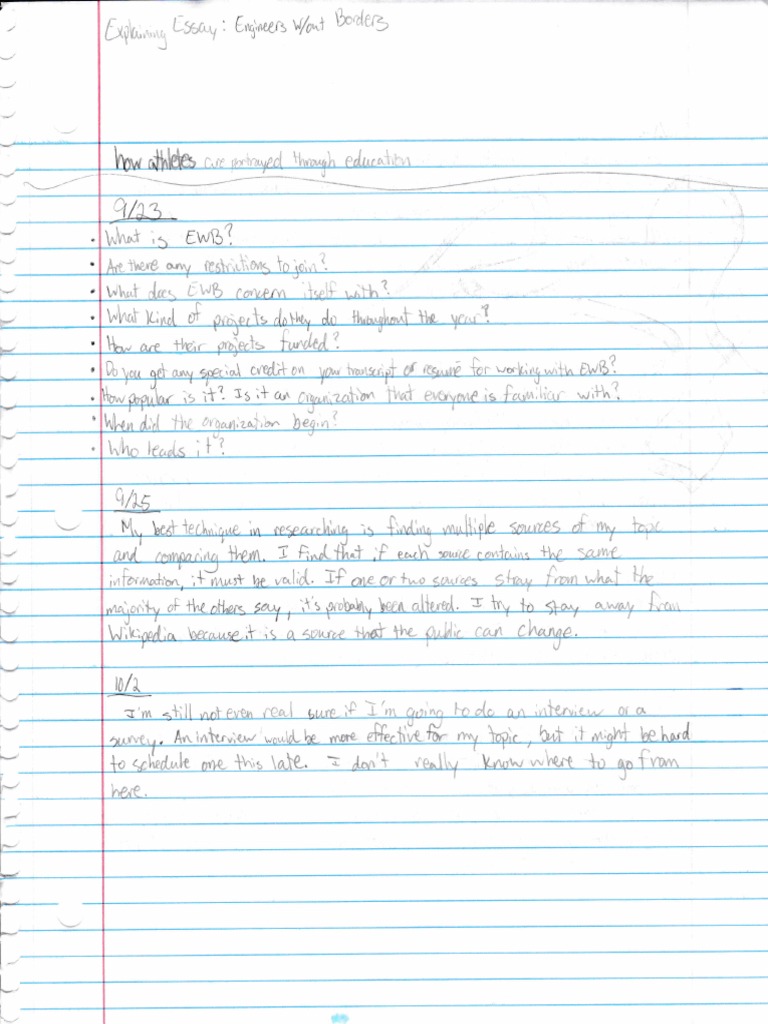 Explaining Essay: Engineers W/out Borders
how athletes are portrayed through education
9/23
• What is EWB?
• Are there any restrictions to join?
• What does EWB concern itself with?
• What kind of projects do they do throughout the year?
• How are their projects funded?
• Do you get any special credit on your transcript or resumé for working with EWB?
• How popular is it? Is it an organization that everyone is familiar with?
• When did the organization begin?
• Who leads it?
9/25
My best technique in researching is finding multiple sources of my topic
and comparing them. I find that if each source contains the same
information, it must be valid. If one or two sources stray from what the
majority of the others say, it's probably been altered. I try to stay away from
Wikipedia because it is a source that the public can change.
10/2
I'm still not even real sure if I'm going to do an interview or a
survey. An interview would be more effective for my topic, but it might be hard
to schedule one this late. I don't really know where to go from
here.